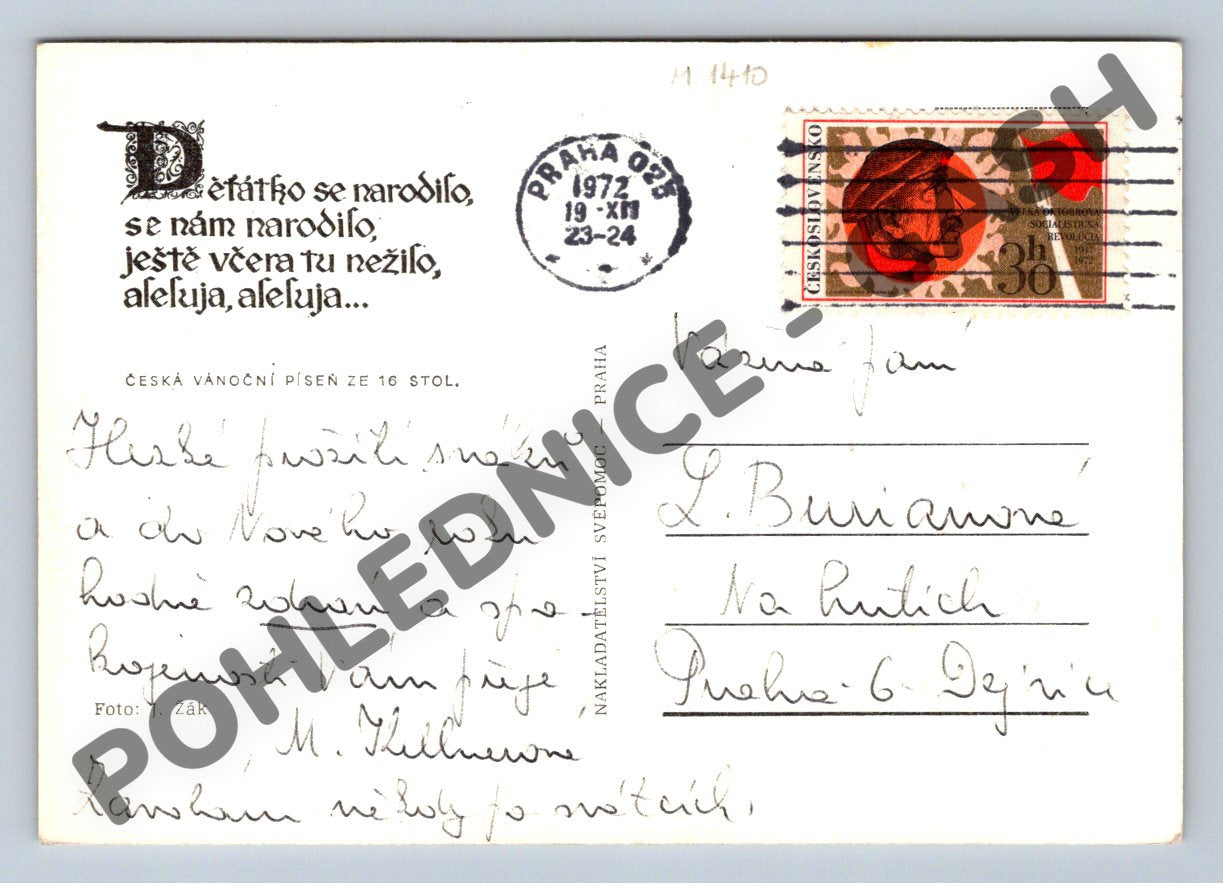 M 1410
Děťátko se narodilo,
se nám narodilo,
ještě včera tu nežilo,
aleluja, aleluja...
ČESKÁ VÁNOČNÍ PÍSEŇ ZE 16 STOL.
PRAHA 025
1972
19.-XII
23-24
ČESKOSLOVENSKO
VEĽKÁ OKTÓBROVÁ
SOCIALISTICKÁ
REVOLÚCIA
1917
1972
30h
Hezké prožití svátků
a do Nového roku
hodně zdraví a spo-
kojenosti Vám přeje
M. Kellnerová
Zavolám někdy po svátcích.
Foto: J. Žák
NAKLADATELSTVÍ SVÉPOMOC - PRAHA
Vážená paní
L. Burianová
Na hutích
Praha - 6 - Dejvice
POHLEDNICE - SH